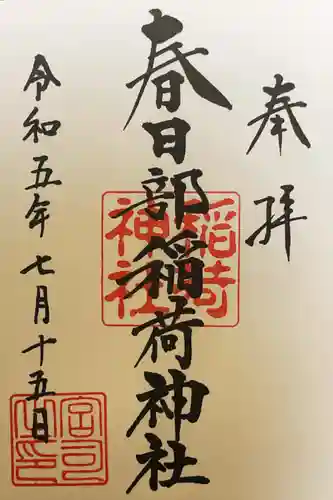 奉拝
春日部稲荷神社
稲荷神社
令和五年七月十五日
宮司之印